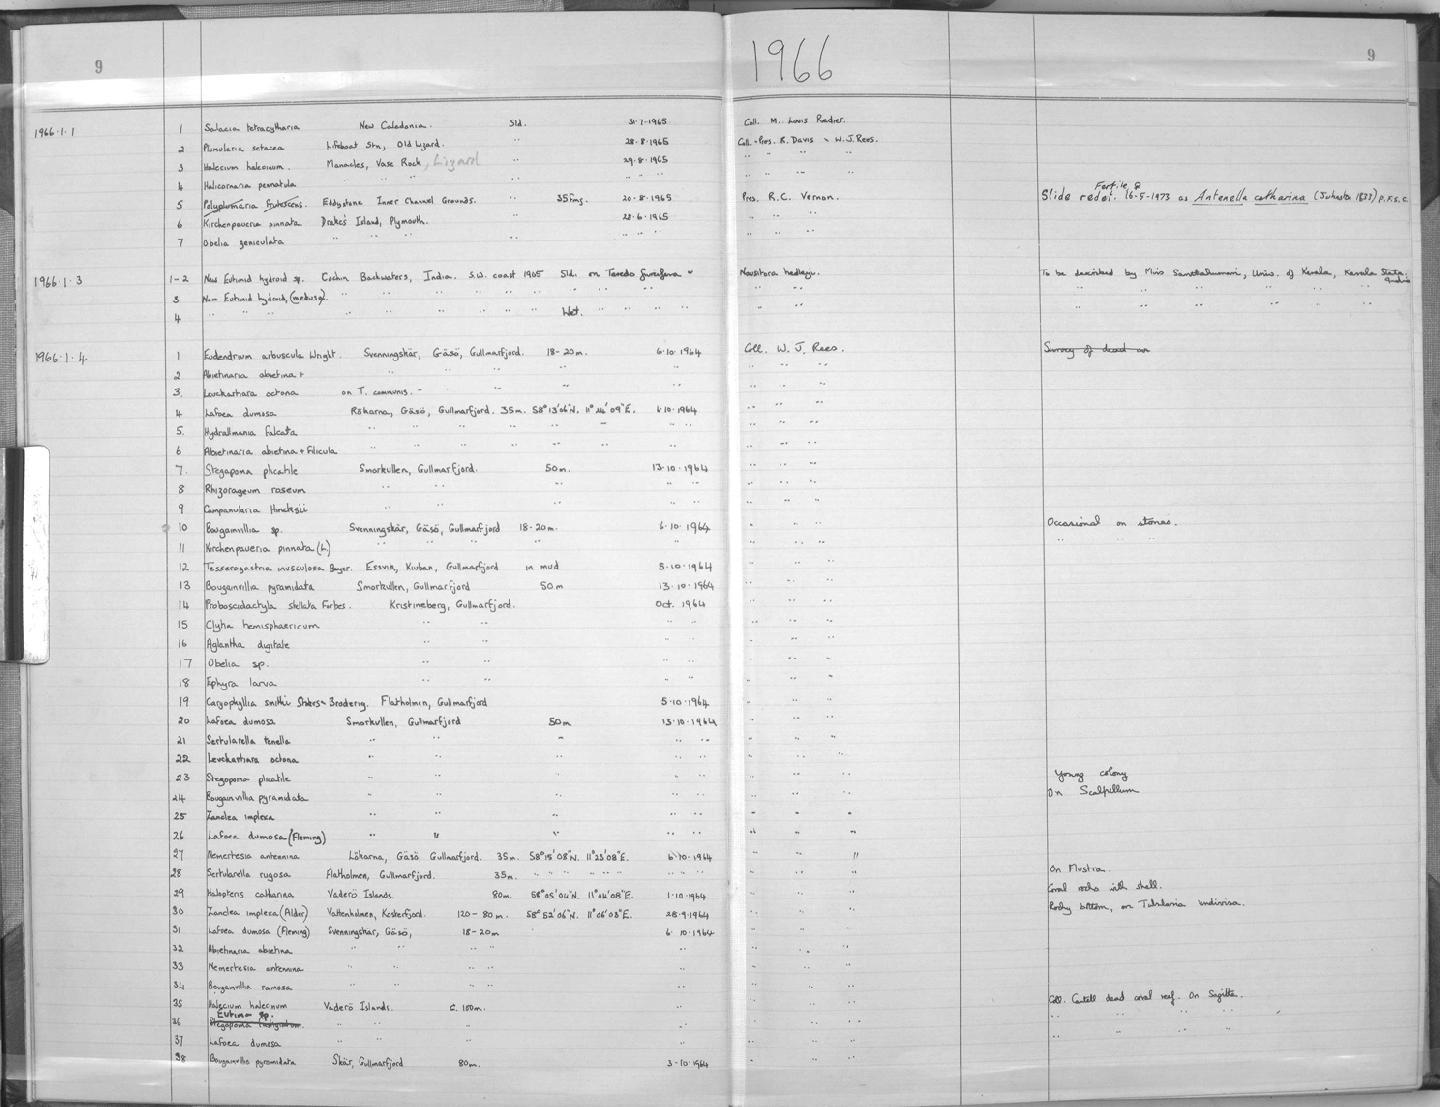 9
1966
9
1966.1.1 1 Salacia tetracytharia New Caledonia. Sld. 31.1.1965 Coll. M. Louis
2 Plumularia setacea Lifeboat Stn, Old Lizard. " 28.8.1965 Coll. & Pres. R. Davis & W.J. Rees.
3 Halecium halecinum. Manacles, Vase Rock, Lizard " 29.8.1965 " " " " "
4 Halicornaria pennatula " " " " "
5 Polyplumaria frutescens. Eddystone Inner Channel Grounds. " 35fms. 20.8.1965 Pres. R.C. Vernon. Slide redet. Fertile ♀ 16-5-1973 as Antenella catharina (Johnston 1833) P.F.S.C.
6 Kirchenpaueria pinnata Drake's Island, Plymouth. " 28.6.1965 " "
7 Obelia geniculata " " " " " " " "
1966.1.3 1-2 New Eutimid hydroid sp. Cochin Backwaters, India. S.W. coast 1965 Sld. on Teredo furcifera & Nausitora hedleyi. To be described by Miss Santhakumari, Univ. of Kerala, Kerala State. India
3 New Eutimid hydroid, (medusa). " " " " " " " " " "
4 " " " " " " " Wet. " " " "
1966.1.4. 1 Eudendrium arbuscula Wright. Svenningskär, Gåsö, Gullmarfjord. 18-20m. 6.10.1964 Coll. W. J. Rees. Survey of dead on
2 Abietinaria abietina + " " " " "
3. Leuckartiara octona on T. communis. " " " "
4 Lafoea dumosa Rökarna, Gåsö, Gullmarfjord. 35m. 6.10.1964 " "
5. Hydrallmania falcata " " " " " " "
6 Abietinaria abietina + Filicula " " " "
7. Stegapona plicatile Smorkullen, Gullmarfjord. 50m. 13.10.1964 " "
8 Rhizorageum roseum " " " " "
9 Campanularia Hincksii " " " " "
10 Bougainvillia sp. Svenningskär, Gåsö, Gullmarfjord 18-20m. 6.10.1964 " " Occasional on stones.
11 Kirchenpaueria pinnata (L.) " " " " " " "
12 Gullmarfjord in mud 5.10.1964 " "
13 Bougainvillia pyramidata Smorkullen, Gullmarfjord 50m 13.10.1964 " "
14 Proboscidactyla stellata Forbes. Kristineberg, Gullmarfjord. Oct. 1964 " "
15 Clytia hemisphaericum " " " "
16 Aglantha digitale " " " "
17 Obelia sp. " " " "
18 Ephyra larva " " " "
19 Caryophyllia smithi Stokes & Broderip. Flatholmen, Gullmarfjord 5.10.1964 " "
20 Lafoea dumosa Smorkullen, Gullmarfjord 50m 13.10.1964 " "
21 Sertularella tenella " " " " "
22 Leuckartiara octona " " " " "
23 Stegopoma plicatile " " " " " Young colony
24 Bougainvillia pyramidata " " " " " On Scalpillum
25 Zanclea implexa " " " " "
26 Lafoea dumosa (Fleming) " " " " "
27 Nemertesia antennina Lökarna, Gåsö Gullmarfjord. 35m. 58°15'08"N. 11°25'08"E. 6.10.1964 " "
28 Sertularella rugosa Flatholmen, Gullmarfjord. 35m. " " " " On
29 Halopteris catharina Vaderö Islands. 80m. 1.10.1964 " " Coral rocks with shell.
30 Zanclea implexa (Alder) Vattenholmen, Kosterfjord. 120-80m. 58°52'06"N. 11°06'03"E. 28.9.1964 " " Rocky bottom, on Tubularia indivisa.
31 Lafoea dumosa (Fleming) Svenningskar, Gåsö, 18-20m 6.10.1964 " "
32 Abietinaria abietina " " " " "
33 Nemertesia antennina " " " " "
34 Bougainvillia ramosa " " " " "
35 Halecium halecinum Vaderö Islands. c. 100m. " " dead coral reef. On Sagitta.
36 Eutima sp. " " " " " "
37 Lafoea dumosa " " " " " "
38 Bougainvillia pyramidata Skär, Gullmarfjord 80m. 3-10-1964 " "